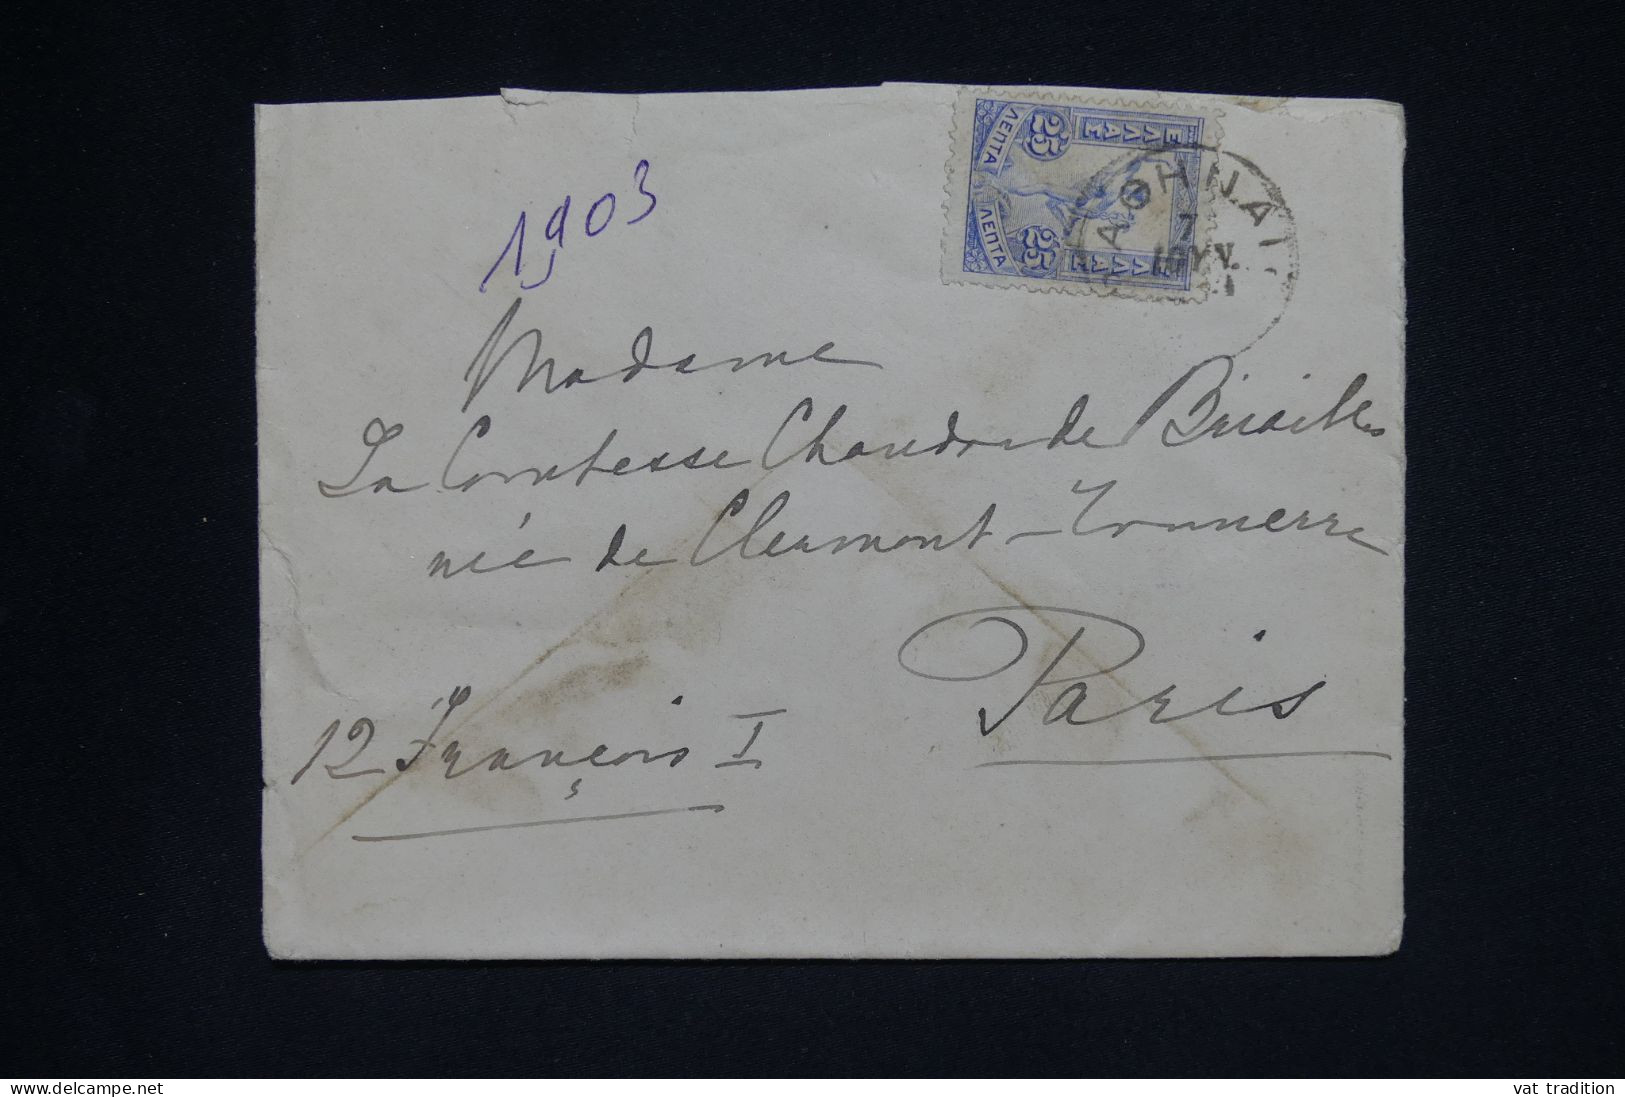 ΕΛΛΑΣ
ΕΛΛΑΣ
25
25
ΛΕΠΤΑ
ΛΕΠΤΑ
ΑΘΗΝΑΙ
7
1903
Madame
La Comtesse Chandon de Briailles
née de Clermont-Tonnerre
Paris
12 François I
www.delcampe.net
vat tradition